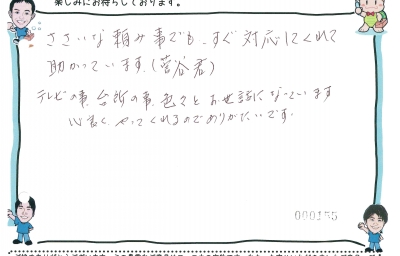 楽しみにお待ちしております。
ささいな頼み事でも、すぐ対応してくれて
助かっています。(菅谷君)
テレビの事、台所の事、色々とお世話になっています
心良く、やってくれるのでありがたいです。
000155